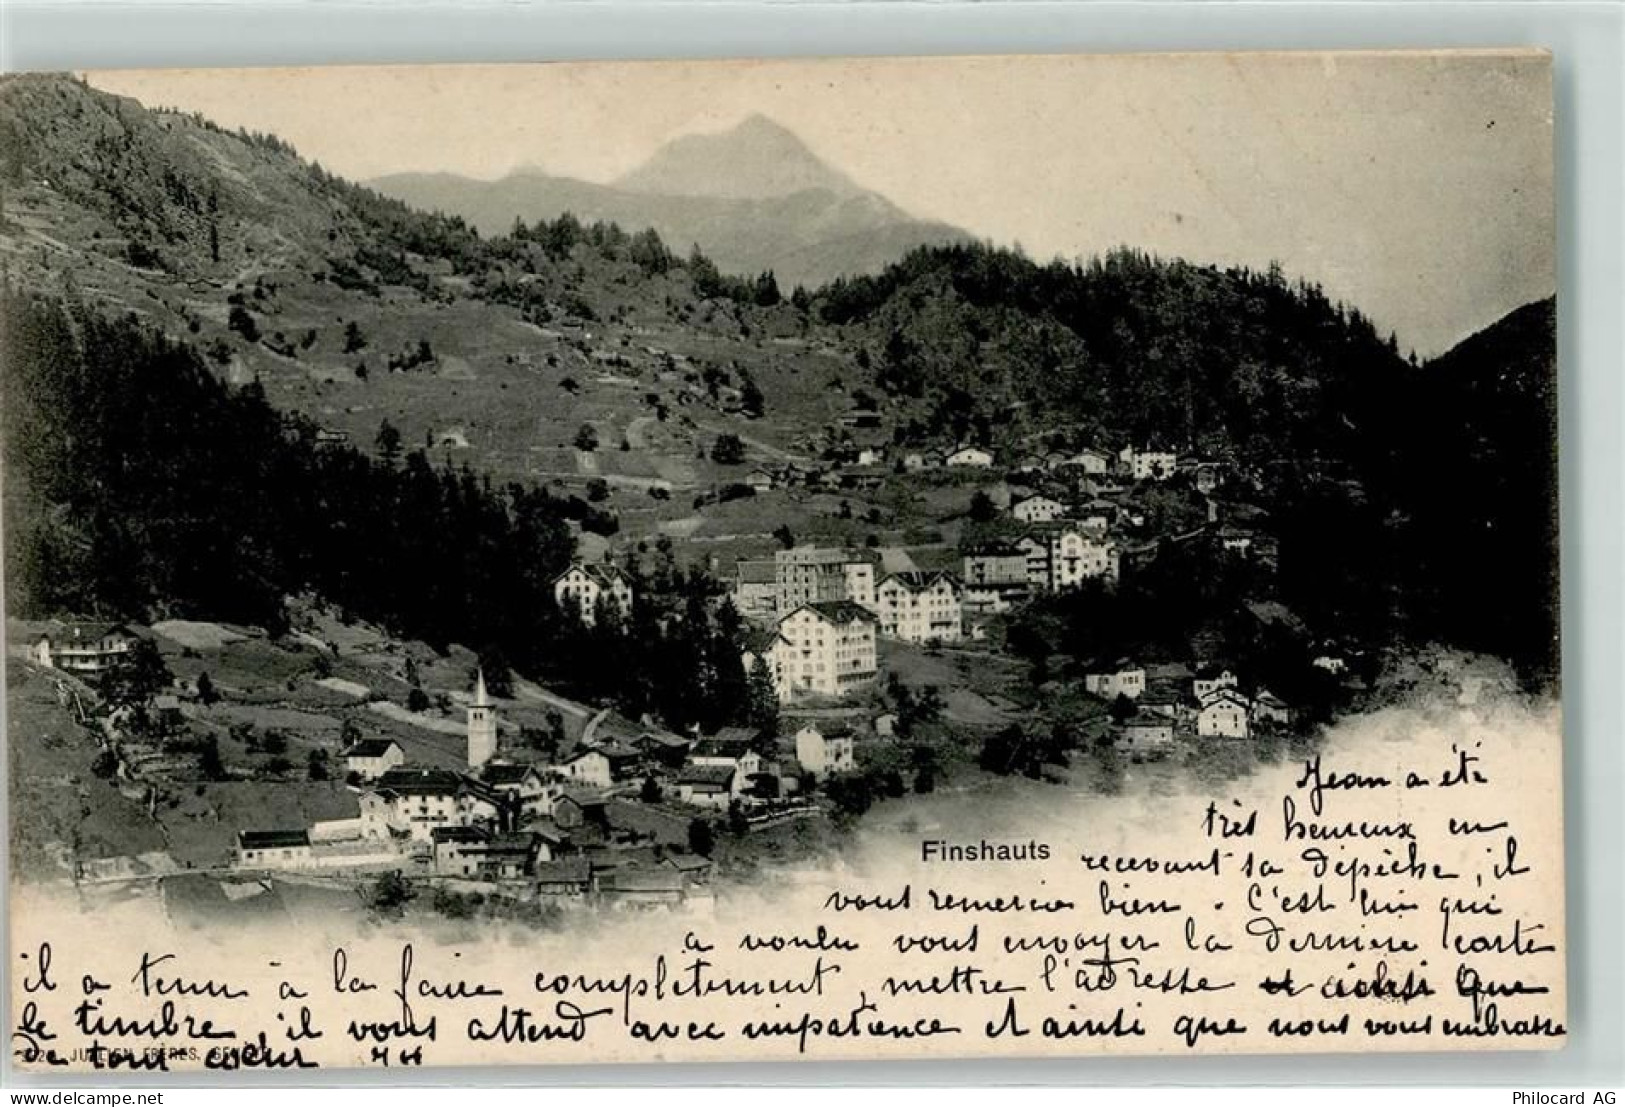 Finshauts
Jean a été
très heureux en
recevant sa dépêche, il
vous remercie bien. C'est lui qui
a voulu vous envoyer la dernière carte
il a tenu à la faire complètement, mettre l'adresse et ainsi que
le timbre, il vous attend avec impatience et ainsi que nous vous embrasse
de tout cœur
JULLIEN FRÈRES, GENÈVE
akpool.com
Philocard AG